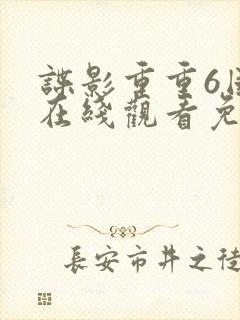 諜影重重6
在綫觀看免
長安市井之徒